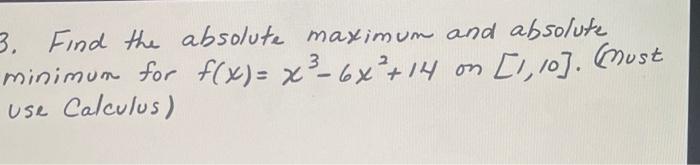 3. Find the absolute maximum and absolute
minimum for f(x) = x³ - 6x² + 14 on [1, 10]. (Must
use Calculus)